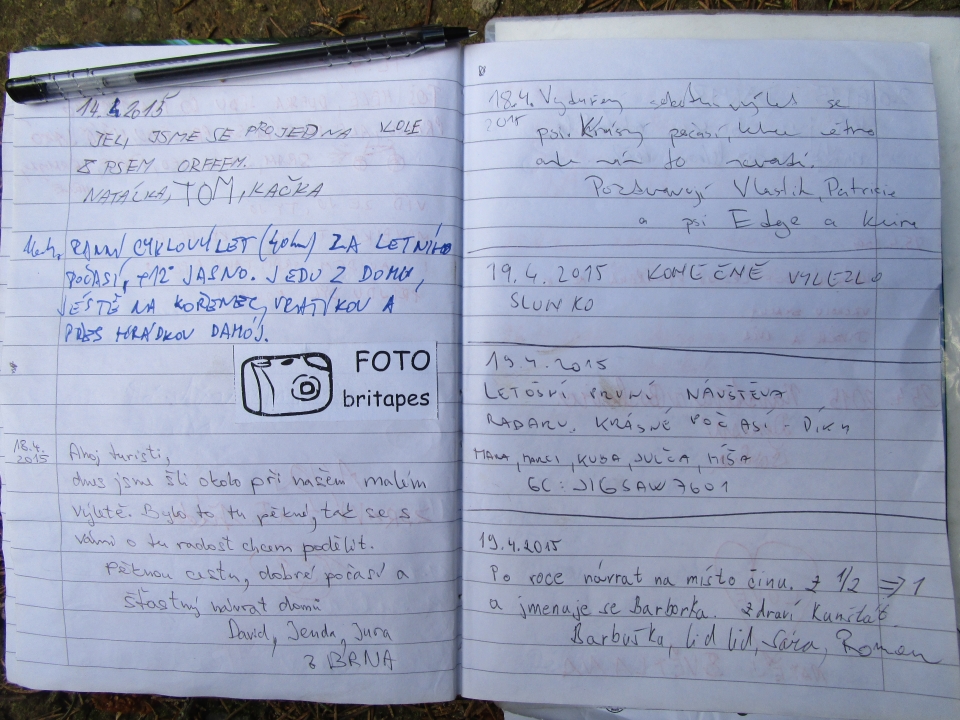 14.4.2015
JELI JSME SE PROJED NA KOLE
S PSEM ORFFEM.
NATÁLKA, TOM, KAČKA
RANNÍ CYKLOVÝLET (40km) ZA LETNÍHO
POČASÍ, +12° JASNO. JEDU Z DOMU,
JEŠTĚ NA KOŘENEC, VRATÍKOV A
PŘES HRÁDKOV DAMÓJ.
FOTO
britapes
18.4.
2015
Ahoj turisti,
dnes jsme šli okolo při našem malém
výletě. Bylo to tu pěkné, tak se s
vámi o tu radost chcem podělit.
Pěknou cestu, dobré počasí a
šťastný návrat domů
David, Jenda, Jura
z BRNA
18.4.
2015
Vydařený sobotní výlet se
psi. Krásný počasí, lehce větrno
ale nám to nevadí.
Pozdravují Vlastík, Patricie
a psi Edge a
19.4.2015 KONEČNĚ VYLEZLO
SLUNKO
19.4.2015
LETOŠNÍ PRVNÍ NÁVŠTĚVA
RADARU. KRÁSNÉ POČASÍ - DÍKY
KUBA, JULČA, MÍŠA
GC: JIGSAW7601
19.4.2015
Po roce návrat na místo činu. z 1/2 => 1
a jmenuje se Barborka. Zdraví Kunštát.
Barbuška, lid lid, Sára, Roman